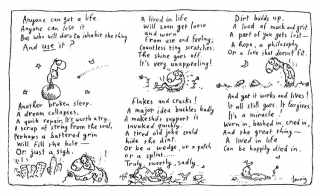 Anyone can get a life.
Anyone can lose it
But who will dare to inhabit the thing
And use it?
Another broken sleep.
A dream collapses.
A quick repair; it's worth a try,
A scrap of string from the soul,
Perhaps a battered grin
Will fill the hole
Or just a sigh.
A lived in life
Will soon get loose
and worn
From use and feeling;
Countless tiny scratches;
The shine goes off
It's very unappealing!
Flakes and cracks!
A major idea buckles badly
A makeshift support is
invoked quickly.
A tired old joke could
hide the dirt.
Or be a wedge, or a patch
or a splint.....
Truly, sweetly, sadly.
Dirt builds up.
A load of muck and grit.
A part of you gets lost
A hope, a philosophy
Or a love that doesn't fit.
And yet it works and lives!
It all still goes. It forgives.
It's a miracle!
Worn in, bashed in, cried in,
And the great thing
A lived in life
Can be happily died in.
Leunig